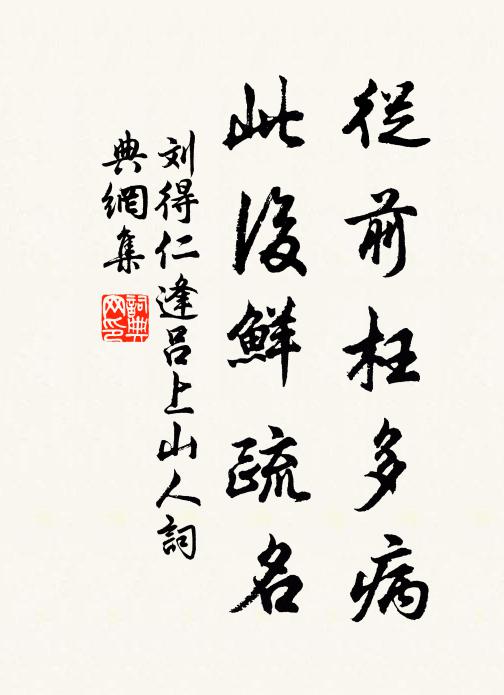 從前枉多病
此後鮮疏名
刘得仁逢吕上山人詞
典網集
詞典网印